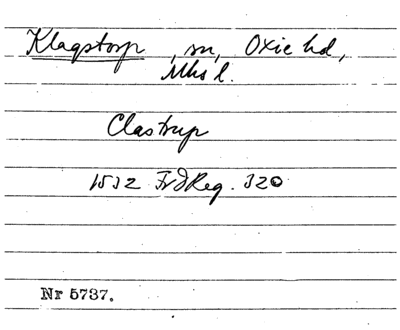 Klagstorp, sn, Oxie hd,
Mhs l.
Clastrup
1532 FrdReg. 320
Nr 5737.